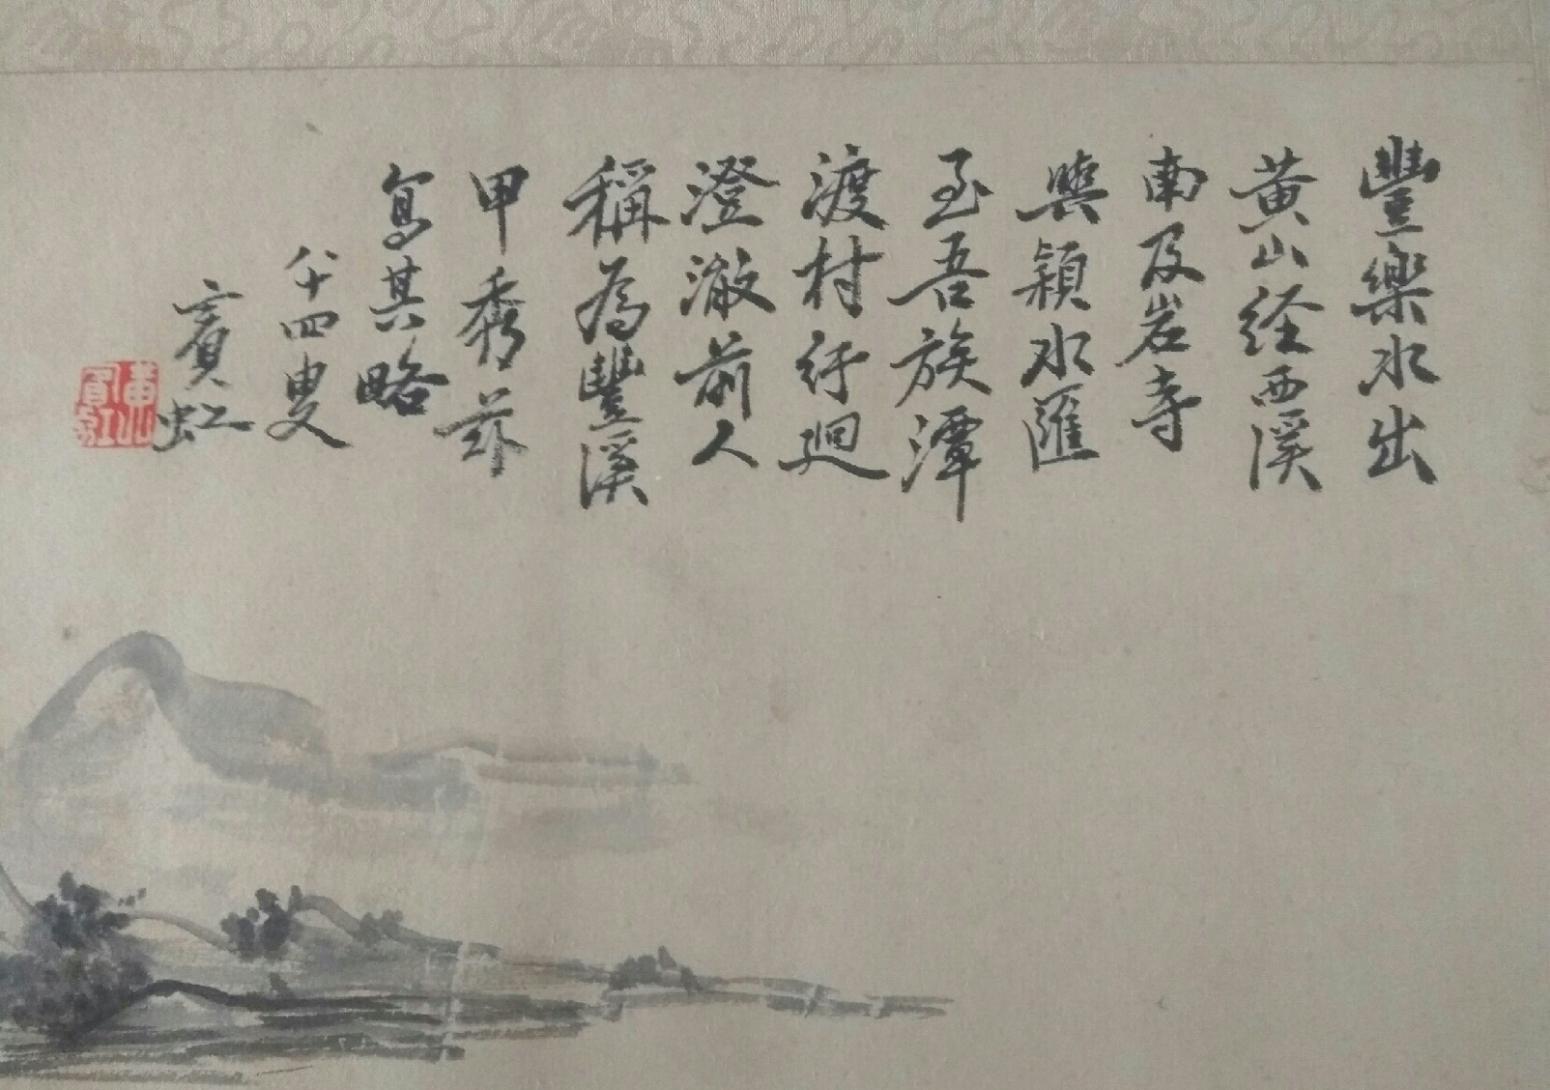 豐樂水出
黃山經西溪
南及岩寺
與潁水匯
至吾族潭
渡村紆迴
澄澈前人
稱為豐溪
甲秀茲
寫其略
八十四叟
賓虹
黃賓虹